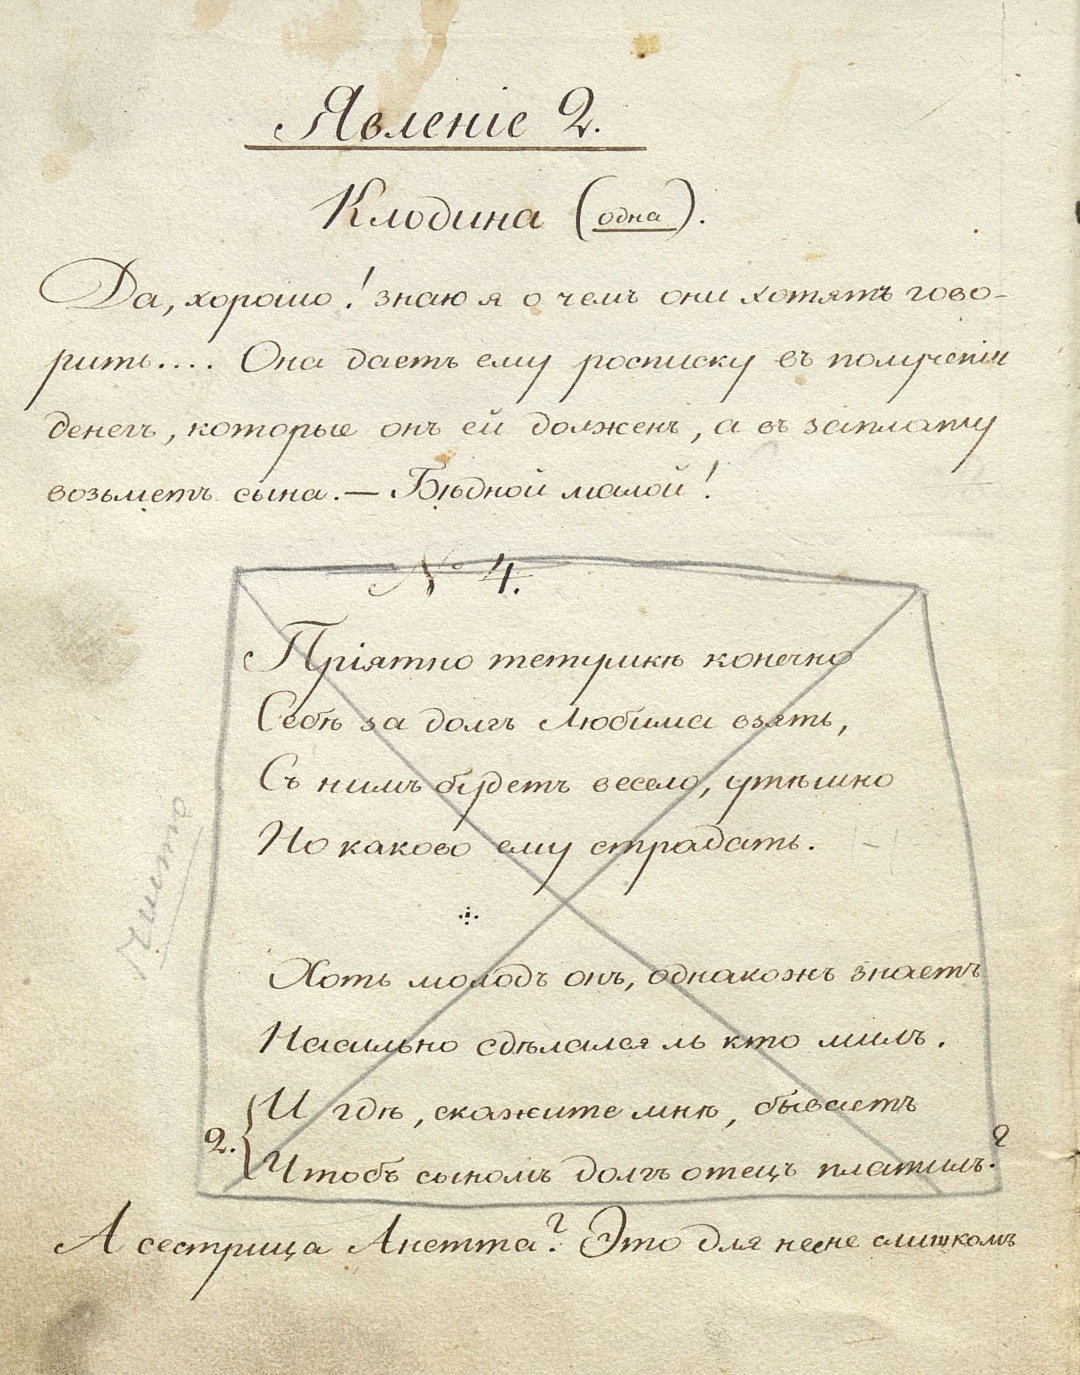 Явленіе 2.
Клодина (одна).
Да, хорошо! знаю я о чемъ они хотятъ гово-
рить.... Она даетъ ему росписку въ полученіи
денегъ, которые онъ ей долженъ, а въ заплату
возьметъ сына. — Бѣдной малой!
№ 4.
Пріятно тетушкѣ конечно
Себѣ за долгъ Любима взять,
Съ нимъ будетъ весело, утѣшно
Но каково ему страдать.
Хоть молодъ онъ, однакожъ знаетъ
Насильно сдѣлался ль кто милъ.
И гдѣ, скажите мнѣ, бываетъ
2. {Чтобъ сыномъ долгъ отецъ платилъ.?
А сестрица Анетта? Это для нее не слишкомъ